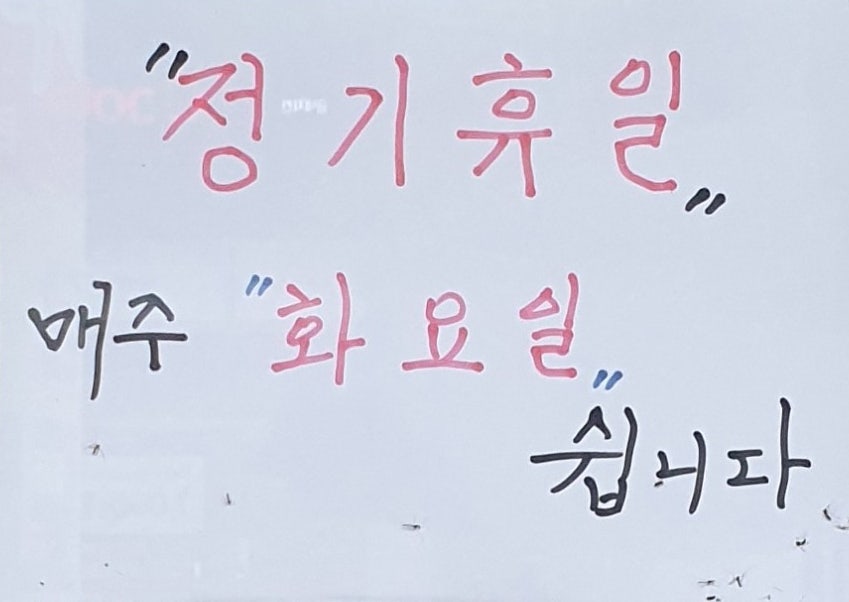 "정기휴일"
매주 "화요일"
쉽니다